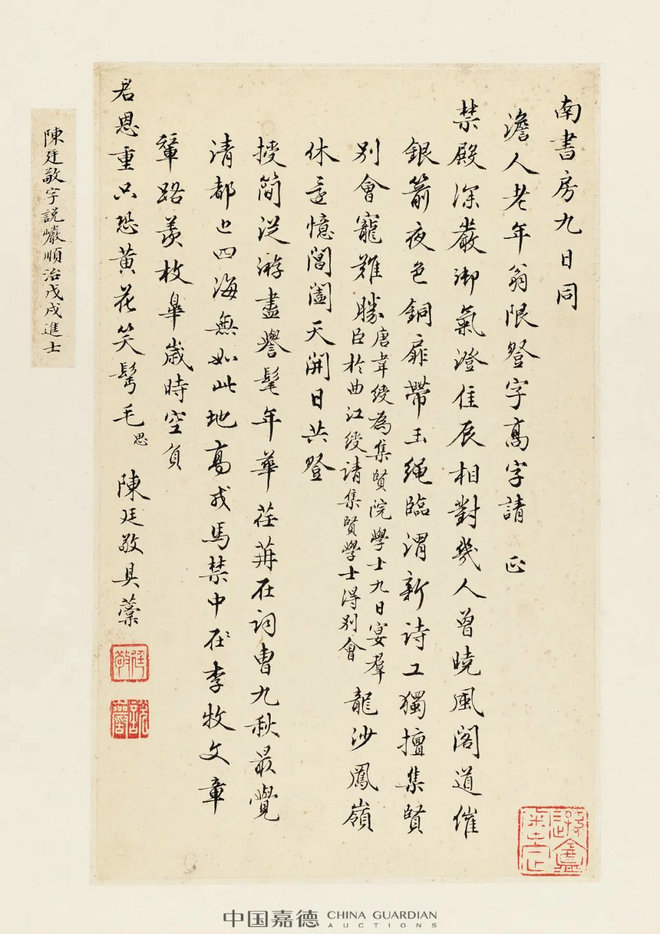 南書房九日同
澹人老年翁限登字高字請 正
禁殿深嚴御氣澄佳辰相對幾人曾曉風閣道催
銀箭夜色銅扉帶玉繩臨渭新詩工獨擅集賢
別會寵難勝唐韋綬為集賢院學士九日宴羣
臣於曲江綬請集賢學士得別會龍沙鳳嶺
休遠憶閶闔天開日共登
授簡從游盡譽髦年華荏苒在詞曹九秋最覺
清都上四海無如此地高戎馬禁中在李牧文章
輦路羨枚皋歲時空負
君恩重只恐黃花笑鬢毛思 陳廷敬具藁
陳廷敬字說巖順治戊戌進士
廷敬
說巖
中国嘉德 CHINA GUARDIAN
AUCTIONS